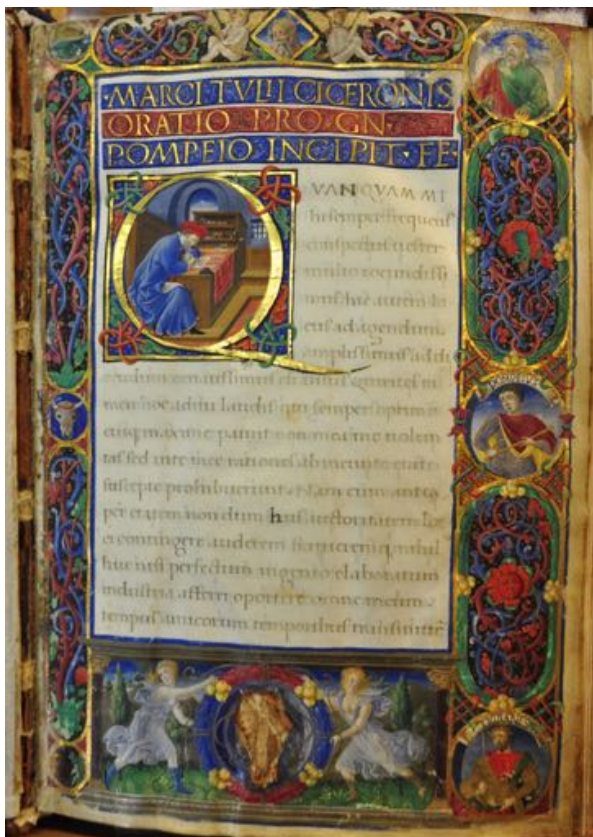 ·MARCI·TVLII·CICERONIS
ORATIO PRO GN·
POMPEIO INCIPIT·FE·
Q VANQVAM MI
hi semper frequens
conspectus uester
multo iocundissi
mus hic autem lo
cus ad agendum
amplissimus ad di
cendum ornatissimus
men hoc aditu laudis qui semper optimo
cuique maxime patuit non mea me uolun
tas sed rationes ab ineunte etate
suscepte prohibuerunt cum antea
per etatem non dum huius auctoritatem lo
ci contingere auderem nihil
huc nisi perfectum ingenio elaboratum
industria afferri oportere omne meum
tempus amicorum temporibus transmitte